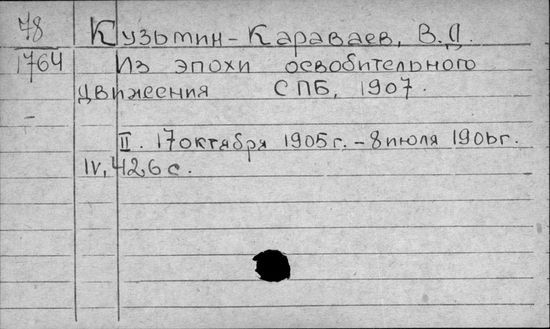 78 Кузьмин-Караваев, В.Д.
1764 Из эпохи освобительного
движения СПБ, 1907.
II. 17 октября 1905 г. – 8 июля 1906 г.
IV, 426 с.